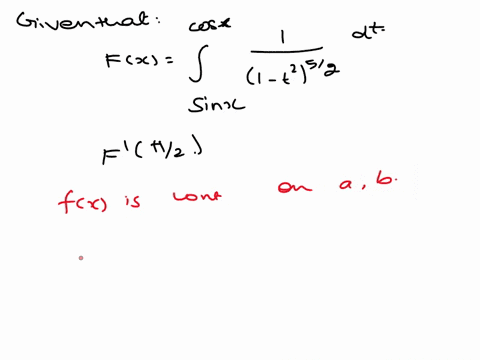 Given that:
F(x) = ∫ from sinx to cosx 1/(1-t²)^5/2 dt
F'(π/2)
f(x) is cont on a, b.